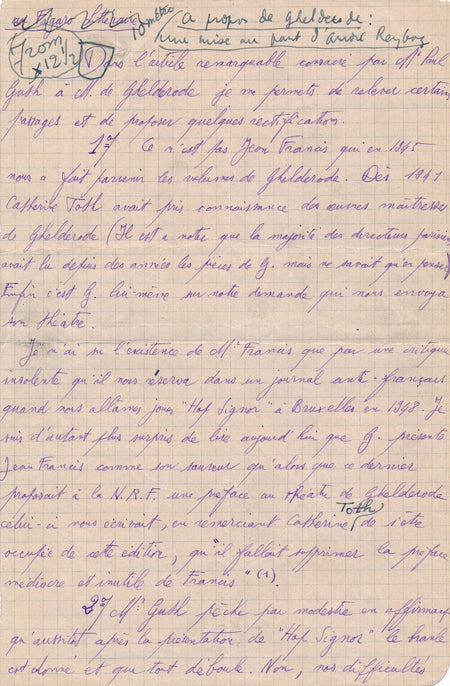 au Figaro littéraire
10 météo
A propos de Ghelderode :
Une mise au point d'André Reybaz
rom
x 12 1/2
Dans l'article remarquable consacré par Mr Paul
Guth à M. de Ghelderode je me permets de relever certains
passages et de proposer quelques rectifications.
1°/ Ce n'est pas Jean Francis qui en 1945
nous a fait parvenir les volumes de Ghelderode. Dès 1941
Catherine Toth avait pris connaissance des œuvres maîtresses
de Ghelderode (Il est a noter que la majorité des directeurs parisiens
avait lu depuis des années les pièces de G. mais ne savait qu'en penser)
Enfin c'est G. lui-même sur notre demande qui nous envoya
son théâtre.
Je n'ai su l'existence de Mr Francis que par une critique
insolente qu'il nous réserva dans un journal anti-français
quand nous allâmes jouer "Hop Signor" à Bruxelles en 1948. Je
suis d'autant plus surpris de lire aujourd'hui que G. présente
Jean Francis comme son sauveur qu'alors que ce dernier
proposait à la N.R.F. une préface au théâtre de Ghelderode
celui-ci nous écrivait, en remerciant Catherine Toth de s'être
occupée de cette édition, qu'"il fallait supprimer la préface
médiocre et inutile de Francis" (1).
2°/ Mr Guth pèche par modestie en affirmant
qu'aussitôt après la présentation de "Hop Signor" le branle
est donné et que tout déboule. Non, nos difficultés